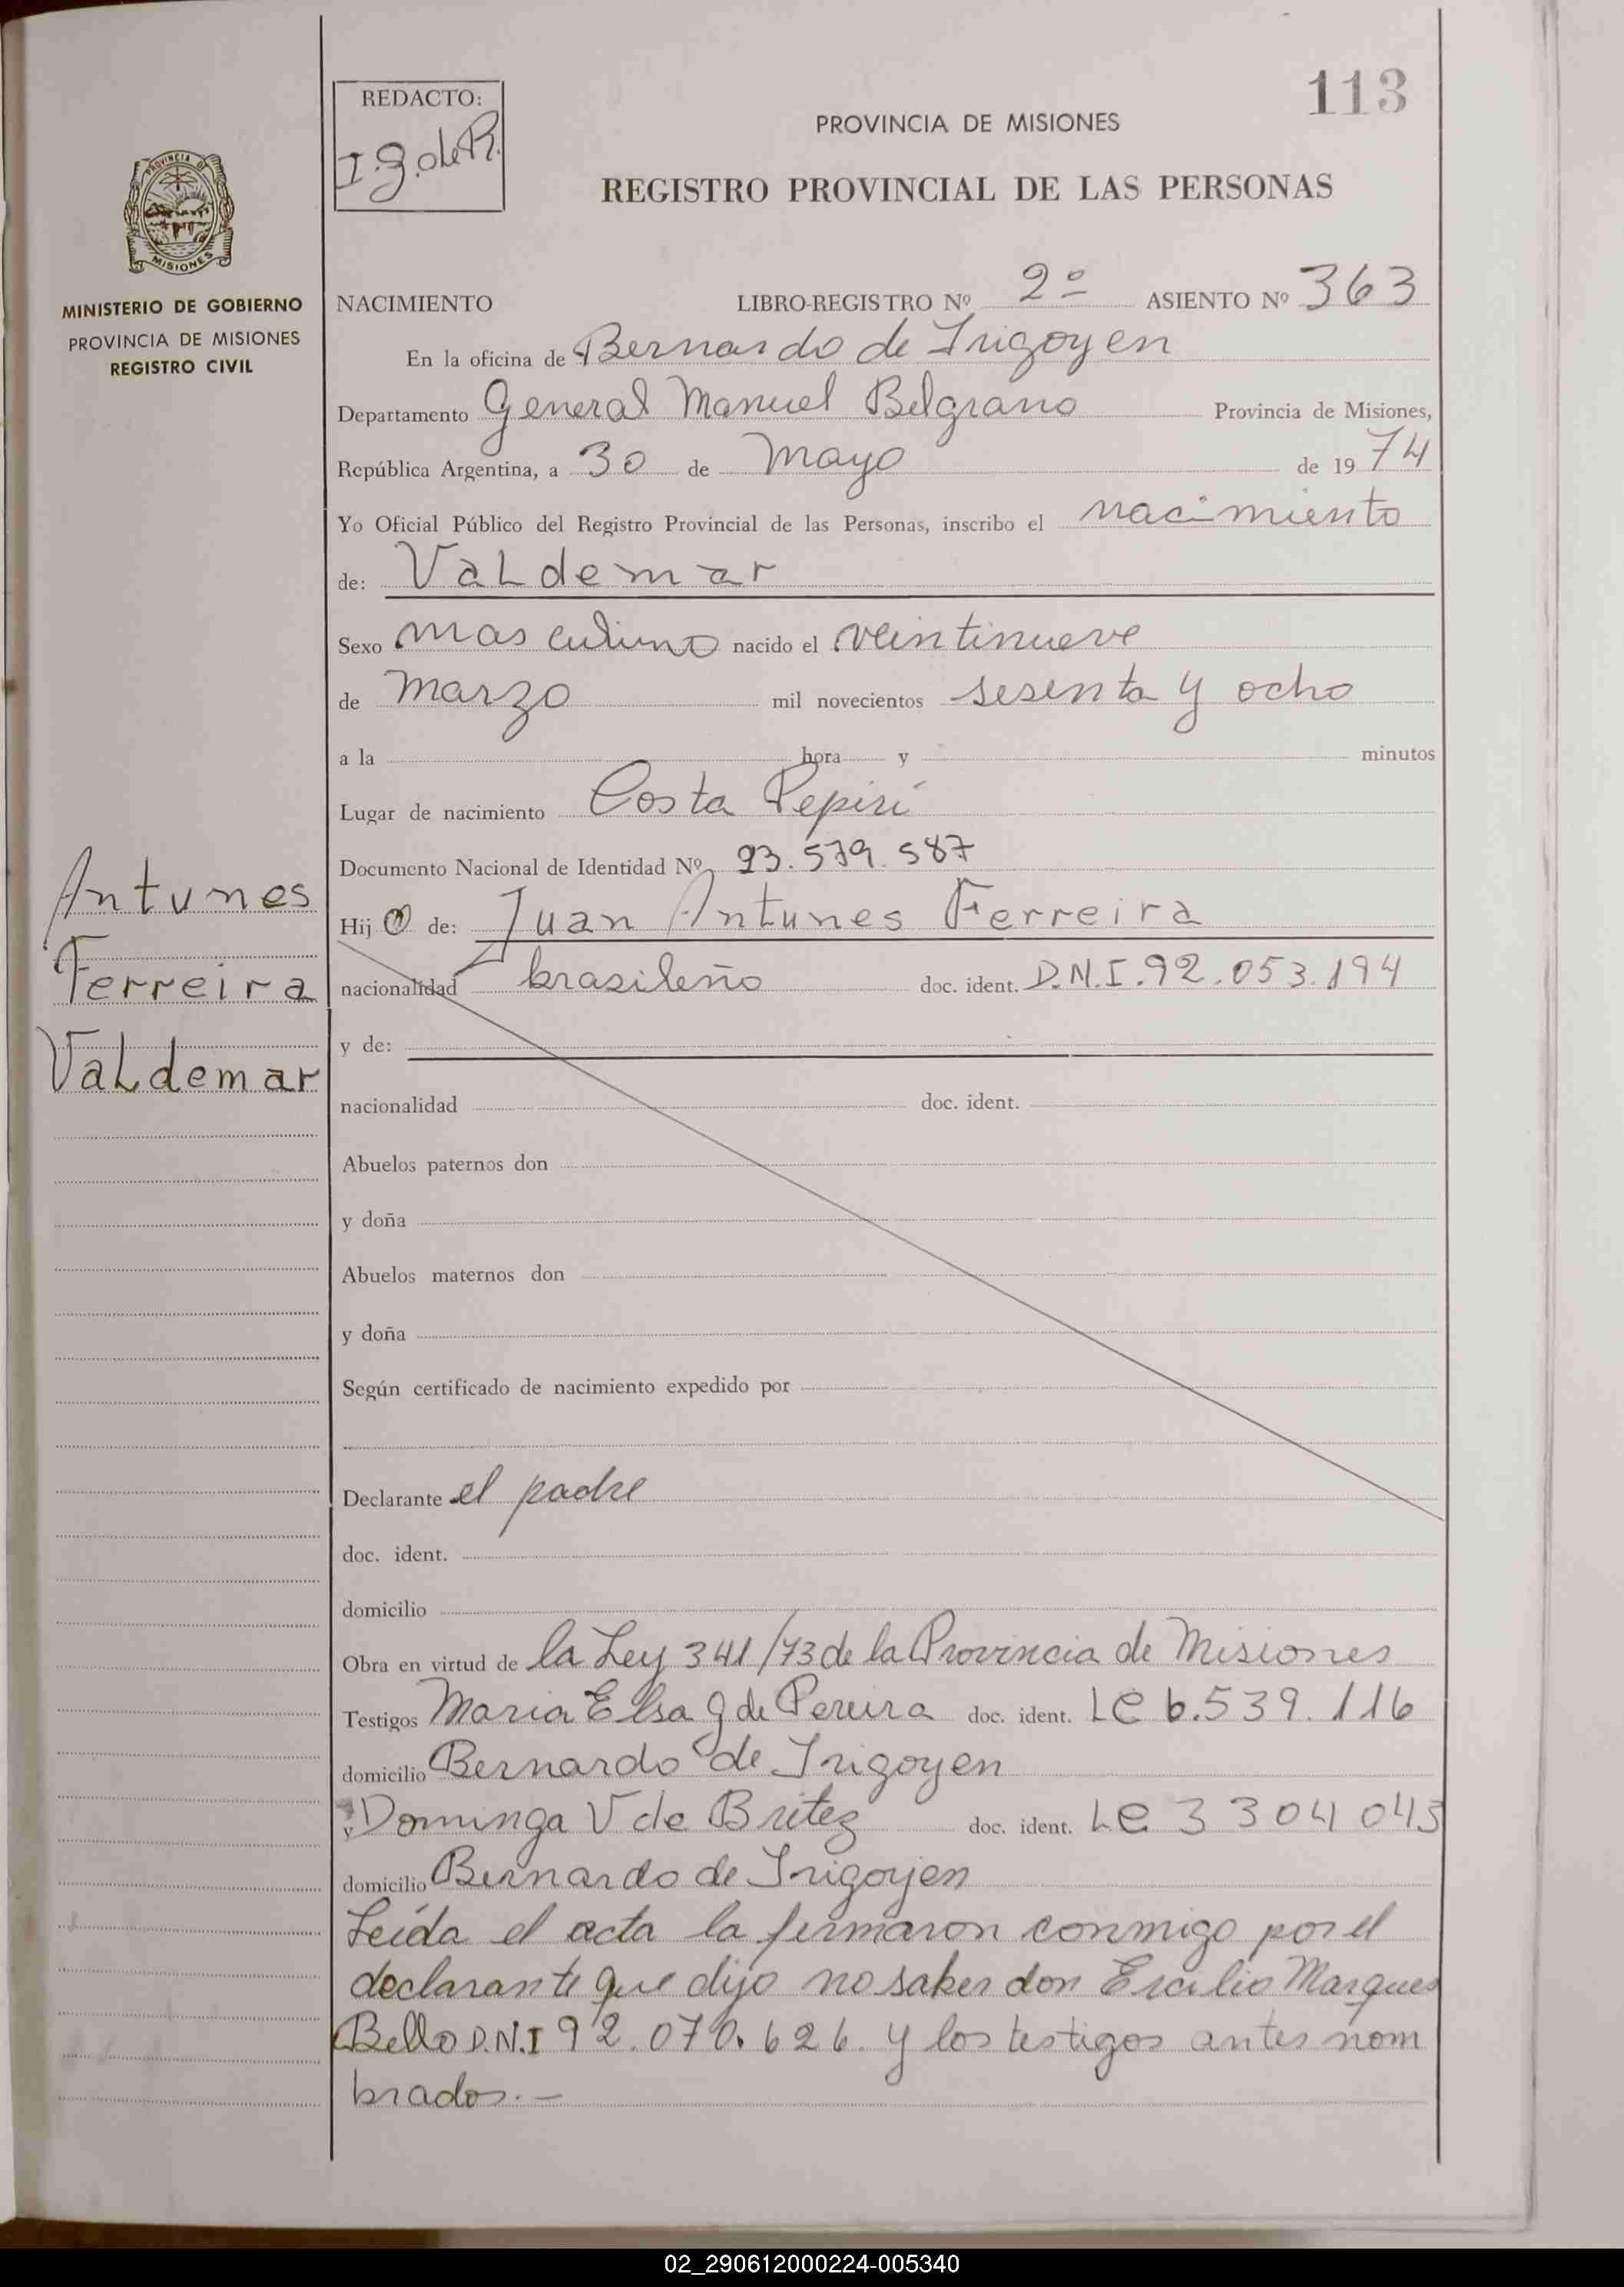 113
REDACTO:
I.G.de R.
PROVINCIA DE MISIONES
REGISTRO PROVINCIAL DE LAS PERSONAS
PROVINCIA DE
MISIONES
MINISTERIO DE GOBIERNO
PROVINCIA DE MISIONES
REGISTRO CIVIL
NACIMIENTO LIBRO-REGISTRO Nº 2º ASIENTO Nº 363
En la oficina de Bernardo de Irigoyen
Departamento General Manuel Belgrano Provincia de Misiones,
República Argentina, a 30 de Mayo de 1974
Yo Oficial Público del Registro Provincial de las Personas, inscribo el nacimiento
de: Valdemar
Sexo masculino nacido el veintinueve
de Marzo mil novecientos sesenta y ocho
a la hora y minutos
Lugar de nacimiento Costa Pepirí
Documento Nacional de Identidad Nº 93.579.587
Antunes
Ferreira
Valdemar
Hijo de: Juan Antunes Ferreira
nacionalidad brasileño doc. ident. D.N.I.92.053.194
y de:
nacionalidad doc. ident.
Abuelos paternos don
y doña
Abuelos maternos don
y doña
Según certificado de nacimiento expedido por
Declarante el padre
doc. ident.
domicilio
Obra en virtud de la Ley 341/73 de la Provincia de Misiones
Testigos Maria Elsa G de Pereira doc. ident. LC 6.539.116
domicilio Bernardo de Irigoyen
y Dominga V de Britez doc. ident. LC 3304043
domicilio Bernardo de Irigoyen
Leída el acta la firmaron conmigo por el
declarante que dijo no saber don Ercilio Marques
Bello D.N.I 92.070.626. y los testigos antes nom
brados.—
02_290612000224-005340